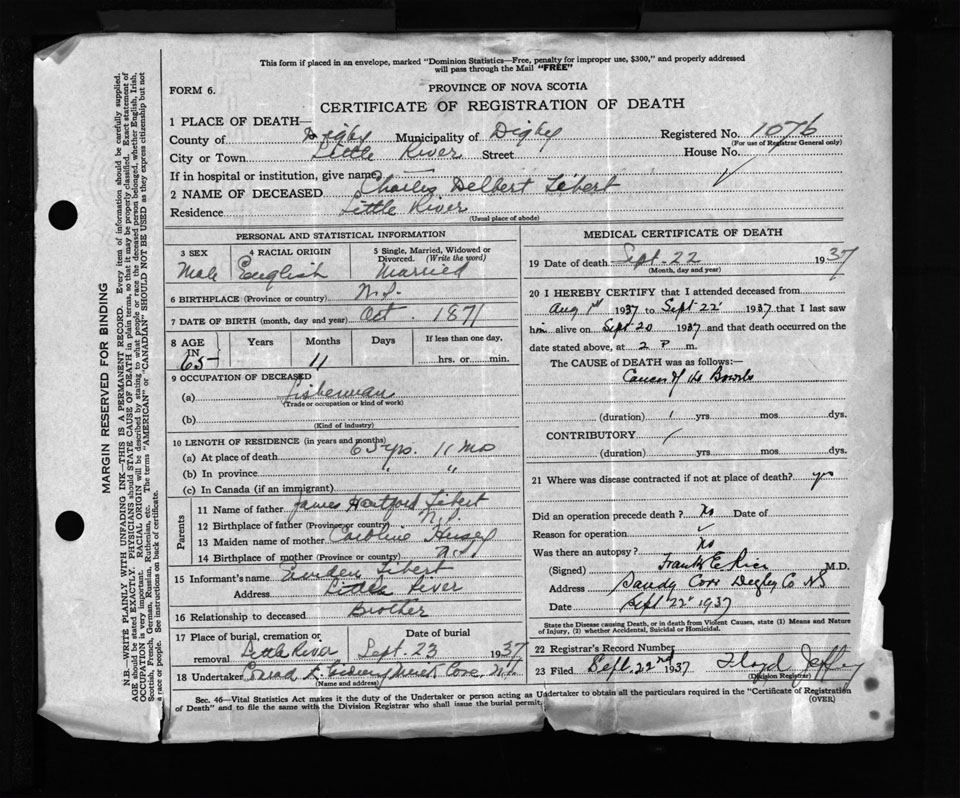 This form if placed in an envelope, marked "Dominion Statistics—Free, penalty for improper use, $300," and properly addressed
will pass through the Mail "FREE"
FORM 6.
PROVINCE OF NOVA SCOTIA
CERTIFICATE OF REGISTRATION OF DEATH
1 PLACE OF DEATH—
County of Digby Municipality of Digby Registered No. 1076
(For use of Registrar General only)
City or Town Little River Street House No.
If in hospital or institution, give name
2 NAME OF DECEASED Charles Delbert Tibert
Residence Little River
(Usual place of abode)
PERSONAL AND STATISTICAL INFORMATION
3 SEX 4 RACIAL ORIGIN 5 Single, Married, Widowed or
Divorced. (Write the word)
Male English Married
6 BIRTHPLACE (Province or country) N.S.
7 DATE OF BIRTH (month, day and year) Oct. 1871
8 AGE Years Months Days If less than one day,
IN
65 11 hrs. or min.
9 OCCUPATION OF DECEASED
(a) Fisherman
(Trade or occupation or kind of work)
(b)
(Kind of industry)
10 LENGTH OF RESIDENCE (in years and months)
(a) At place of death 65 yrs. 11 mo
(b) In province " "
(c) In Canada (if an immigrant)
Parents
11 Name of father James Hartford Tibert
12 Birthplace of father (Province or country) N.S.
13 Maiden name of mother Caroline Hersey
14 Birthplace of mother (Province or country) N.S.
15 Informant's name Tibert
Address Little River
16 Relationship to deceased Brother
17 Place of burial, cremation or Date of burial
removal Little River Sept. 23 1937
18 Undertaker Cove, N.S.
(Name and address)
MEDICAL CERTIFICATE OF DEATH
19 Date of death Sept. 22 1937
(Month, day and year)
20 I HEREBY CERTIFY that I attended deceased from
Aug 1st 1937 to Sept 22 1937 that I last saw
him alive on Sept 20 1937 and that death occurred on the
date stated above, at 2 P m.
The CAUSE OF DEATH was as follows:—
Cancer of the Bowels
(duration) 1 yrs. mos. dys.
CONTRIBUTORY
(duration) yrs. mos. dys.
21 Where was disease contracted if not at place of death? yes
Did an operation precede death? No Date of
Reason for operation
Was there an autopsy? No
(Signed) Frank E Rice M.D.
Address Sandy Cove Digby Co NS
Date Sept 22 1937
State the Disease causing Death, or in death from Violent Causes, state (1) Means and Nature
of Injury, (2) whether Accidental, Suicidal or Homicidal.
22 Registrar's Record Number
23 Filed Sept. 22nd 1937 Floyd
(Division Registrar)
Sec. 46—Vital Statistics Act makes it the duty of the Undertaker or person acting as Undertaker to obtain all the particulars required in the "Certificate of Registration
of Death" and to file the same with the Division Registrar who shall issue the burial permit.
(OVER)
MARGIN RESERVED FOR BINDING
N.B.—WRITE PLAINLY WITH UNFADING INK—THIS IS A PERMANENT RECORD. Every item of information should be carefully supplied.
AGE should be stated EXACTLY. PHYSICIANS should STATE CAUSE OF DEATH in plain terms, so that it may be properly classified. Exact statement of
OCCUPATION is very important. RACIAL ORIGIN will be described by stating to what people or race the deceased person belonged, whether English, Irish,
Scottish, French, German, Russian, Ruthenian, etc. The terms "AMERICAN" or "CANADIAN" SHOULD NOT BE USED as they express citizenship but not
a race or people. See instructions on back of certificate.